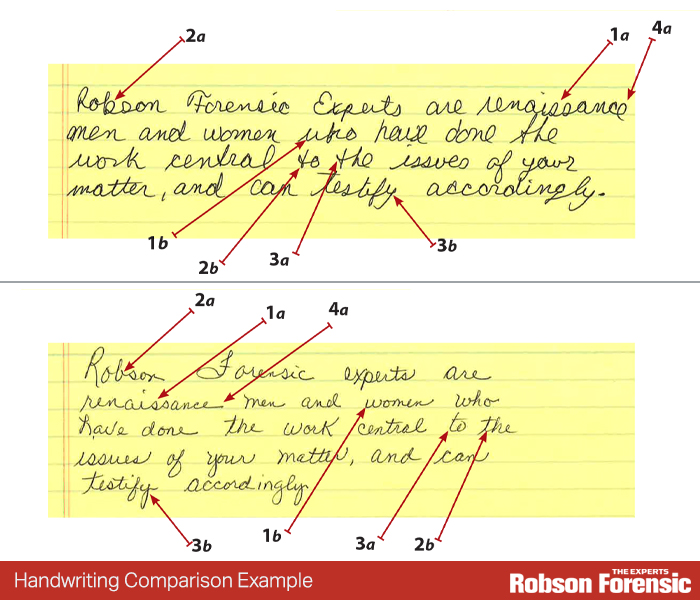 2a
1a
4a
Robson Forensic Experts are renaissance
men and women who have done the
work central to the issues of your
matter, and can testify accordingly.
1b
2b
3a
3b
2a
1a
4a
Robson Forensic experts are
renaissance men and women who
have done the work central to the
issues of your matter, and can
testify accordingly
3b
1b
3a
2b
Handwriting Comparison Example
THE EXPERTS
Robson Forensic